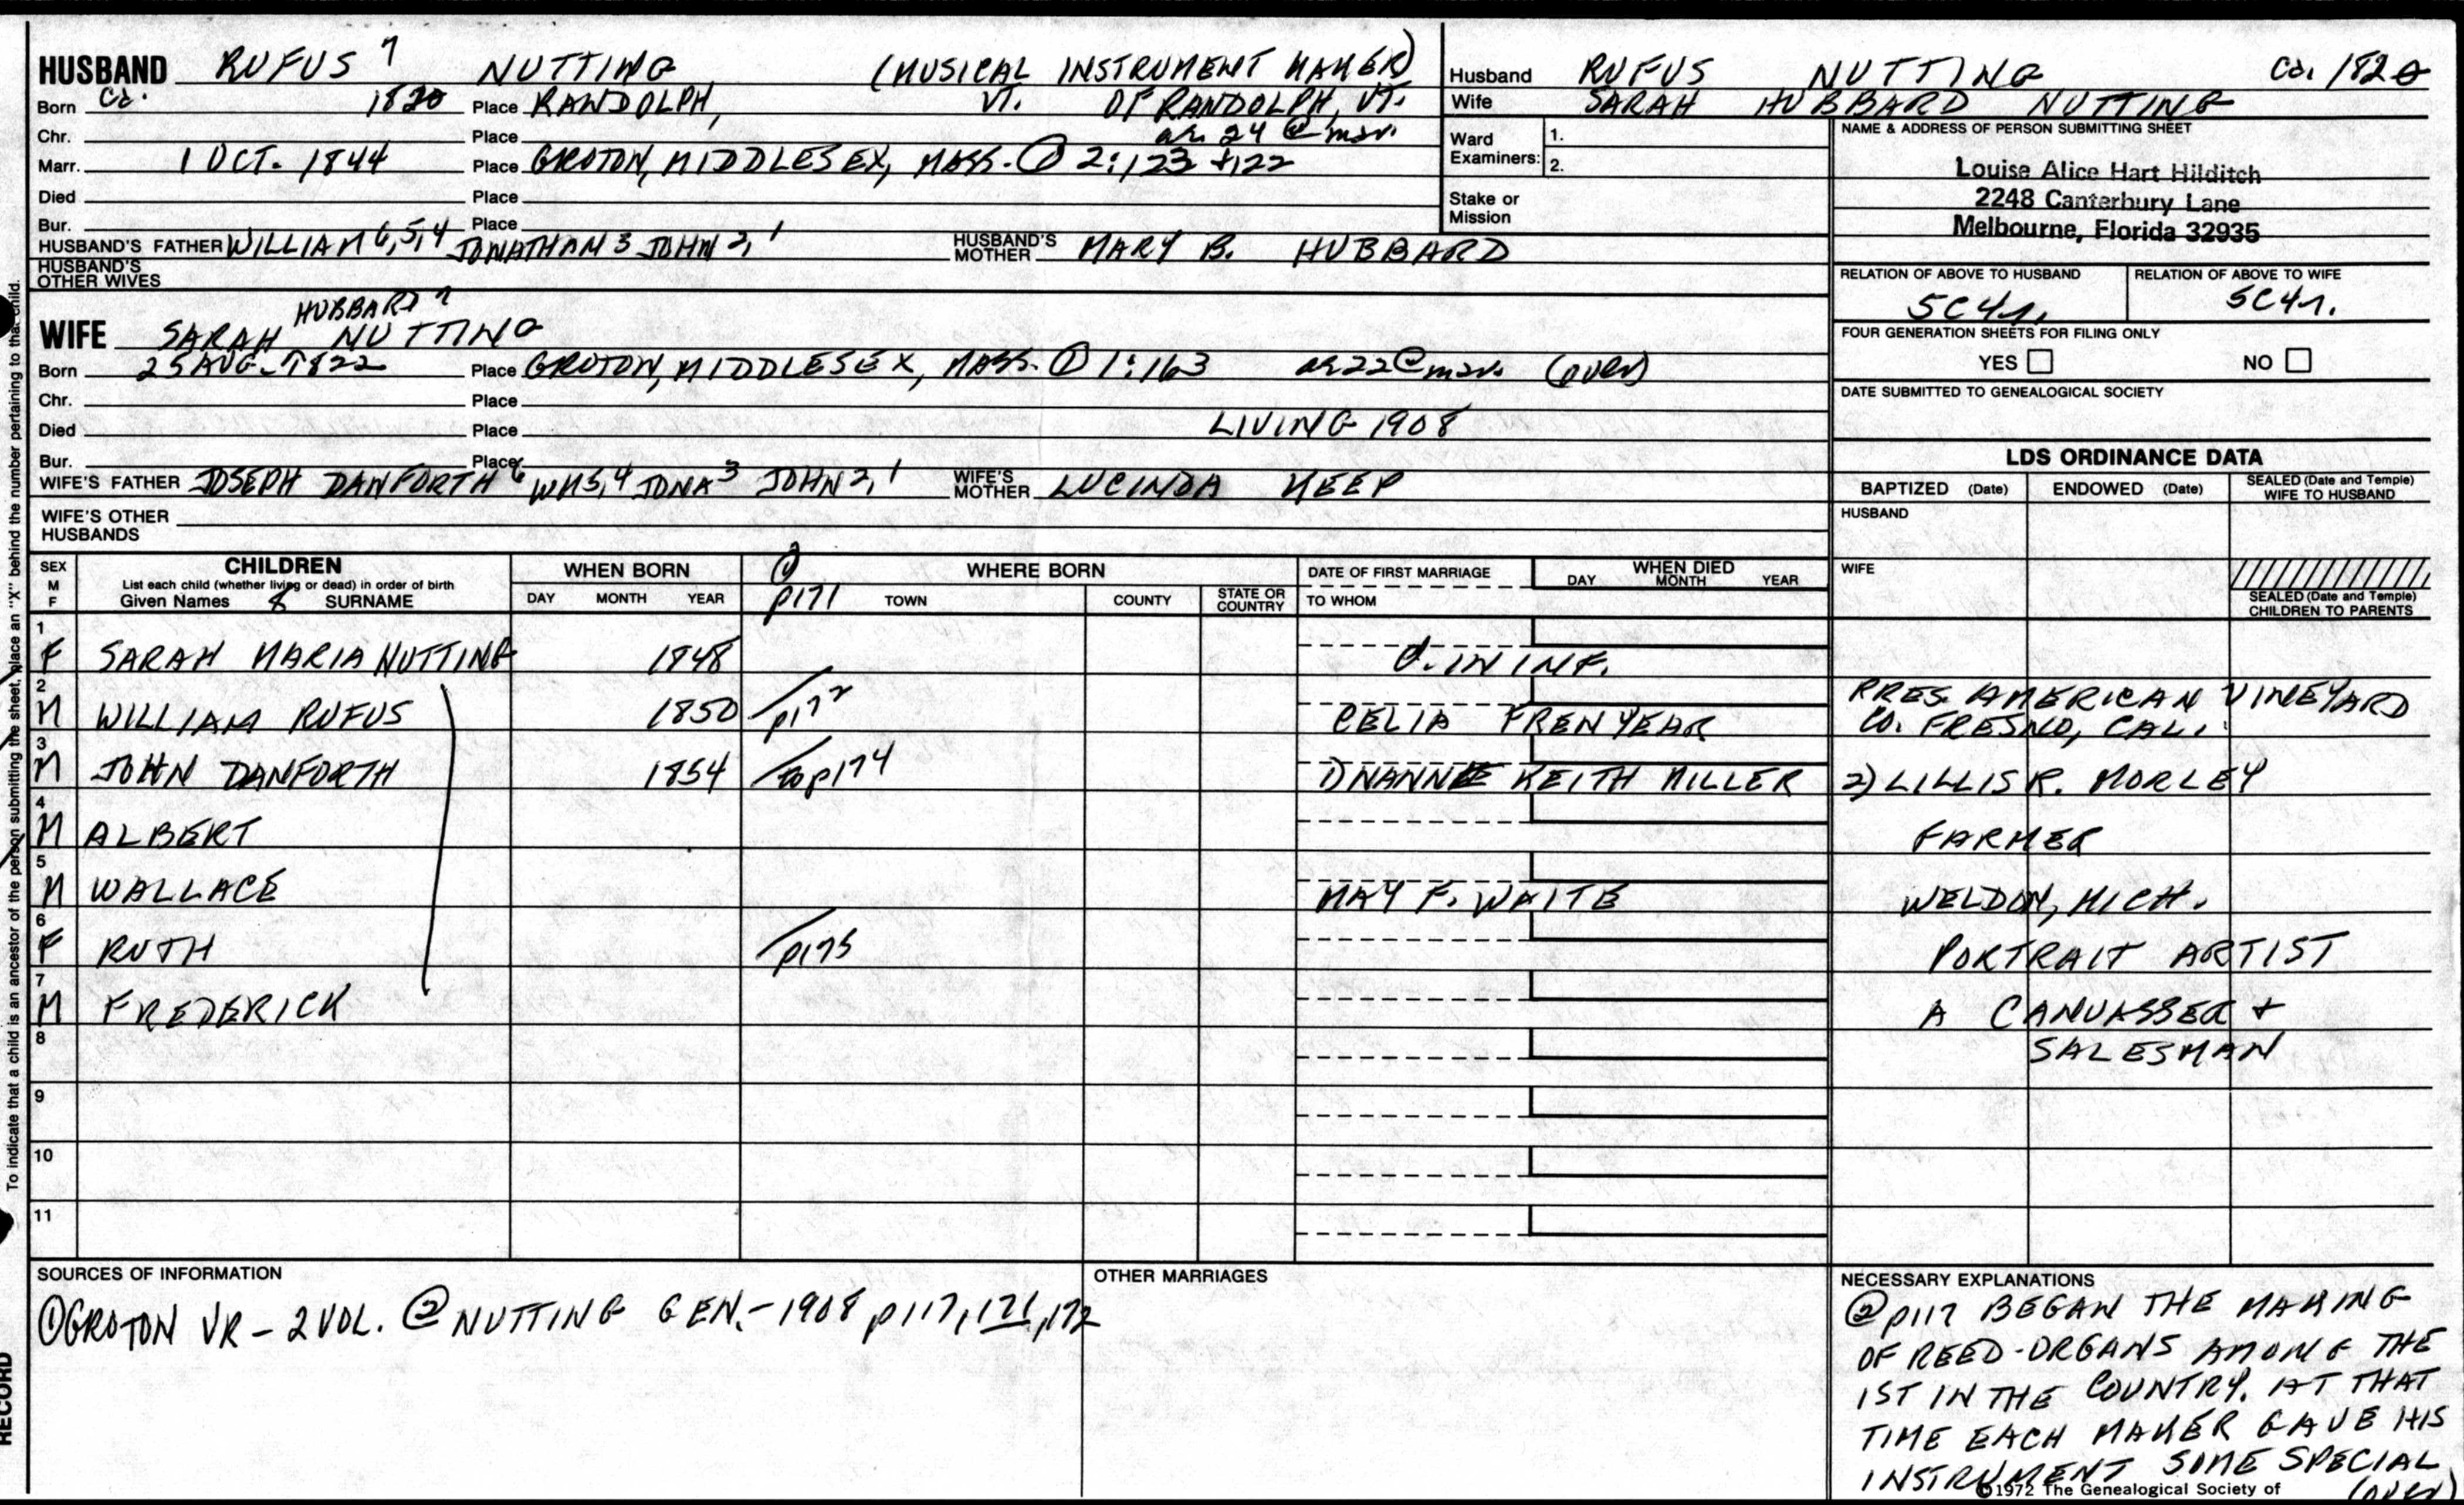 HUSBAND RUFUS 7 NUTTING (MUSICAL INSTRUMENT MAKER)
Born Ca. 1820 Place RANDOLPH, VT. OF RANDOLPH, VT.
Chr. Place ae. 24 @ mar.
Marr. 1 OCT. 1844 Place GROTON, MIDDLESEX, MASS. ① 2:123 +122
Died Place
Bur. Place
HUSBAND'S FATHER WILLIAM 6,5,4 JONATHAN 3 JOHN 2,1 HUSBAND'S MOTHER MARY B. HUBBARD
HUSBAND'S OTHER WIVES
HUBBARD 7
WIFE SARAH NUTTING
Born 25 AUG. 1822 Place GROTON, MIDDLESEX, MASS. ① 1:163 ae 22 @ mar. (over)
Chr. Place
LIVING 1908
Died Place
Bur. Place
WIFE'S FATHER JOSEPH DANFORTH 6 WM 5,4 JONA 3 JOHN 2,1 WIFE'S MOTHER LUCINDA KEEP
WIFE'S OTHER HUSBANDS
Husband RUFUS NUTTING Ca. 1820
Wife SARAH HUBBARD NUTTING
Ward Examiners: 1.
2.
Stake or Mission
NAME & ADDRESS OF PERSON SUBMITTING SHEET
Louise Alice Hart Hilditch
2248 Canterbury Lane
Melbourne, Florida 32935
RELATION OF ABOVE TO HUSBAND RELATION OF ABOVE TO WIFE
5C4r. 5C4r.
FOUR GENERATION SHEETS FOR FILING ONLY
YES NO
DATE SUBMITTED TO GENEALOGICAL SOCIETY
LDS ORDINANCE DATA
BAPTIZED (Date) ENDOWED (Date) SEALED (Date and Temple) WIFE TO HUSBAND
HUSBAND
WIFE
SEALED (Date and Temple) CHILDREN TO PARENTS
SEX M F CHILDREN WHEN BORN ② WHERE BORN DATE OF FIRST MARRIAGE WHEN DIED
List each child (whether living or dead) in order of birth DAY MONTH YEAR
Given Names & SURNAME DAY MONTH YEAR p171 TOWN COUNTY STATE OR COUNTRY TO WHOM
1 F SARAH MARIA NUTTING 1848 d. IN INF.
2 M WILLIAM RUFUS 1850 p172 CELIA FRENYEAR PRES. AMERICAN VINEYARD CO. FRESNO, CAL.
3 M JOHN DANFORTH 1854 to p174 1) NANNIE KEITH MILLER 2) LILLIS R. MORLEY
4 M ALBERT FARMER
5 M WALLACE MAY F. WAITE WELDON, MICH.
6 F RUTH p175 PORTRAIT ARTIST
7 M FREDERICK A CANVASSER + SALESMAN
8
9
10
11
SOURCES OF INFORMATION
① GROTON VR - 2 VOL. ② NUTTING GEN. - 1908 p117, 171, 172
OTHER MARRIAGES
NECESSARY EXPLANATIONS
② p117 BEGAN THE MAKING
OF REED-ORGANS AMONG THE
1ST IN THE COUNTRY. AT THAT
TIME EACH MAKER GAVE HIS
INSTRUMENT SOME SPECIAL
(over)
©1972 The Genealogical Society of
To indicate that a child is an ancestor of the person submitting the sheet, place an "X" behind the number pertaining to that child.
RECORD